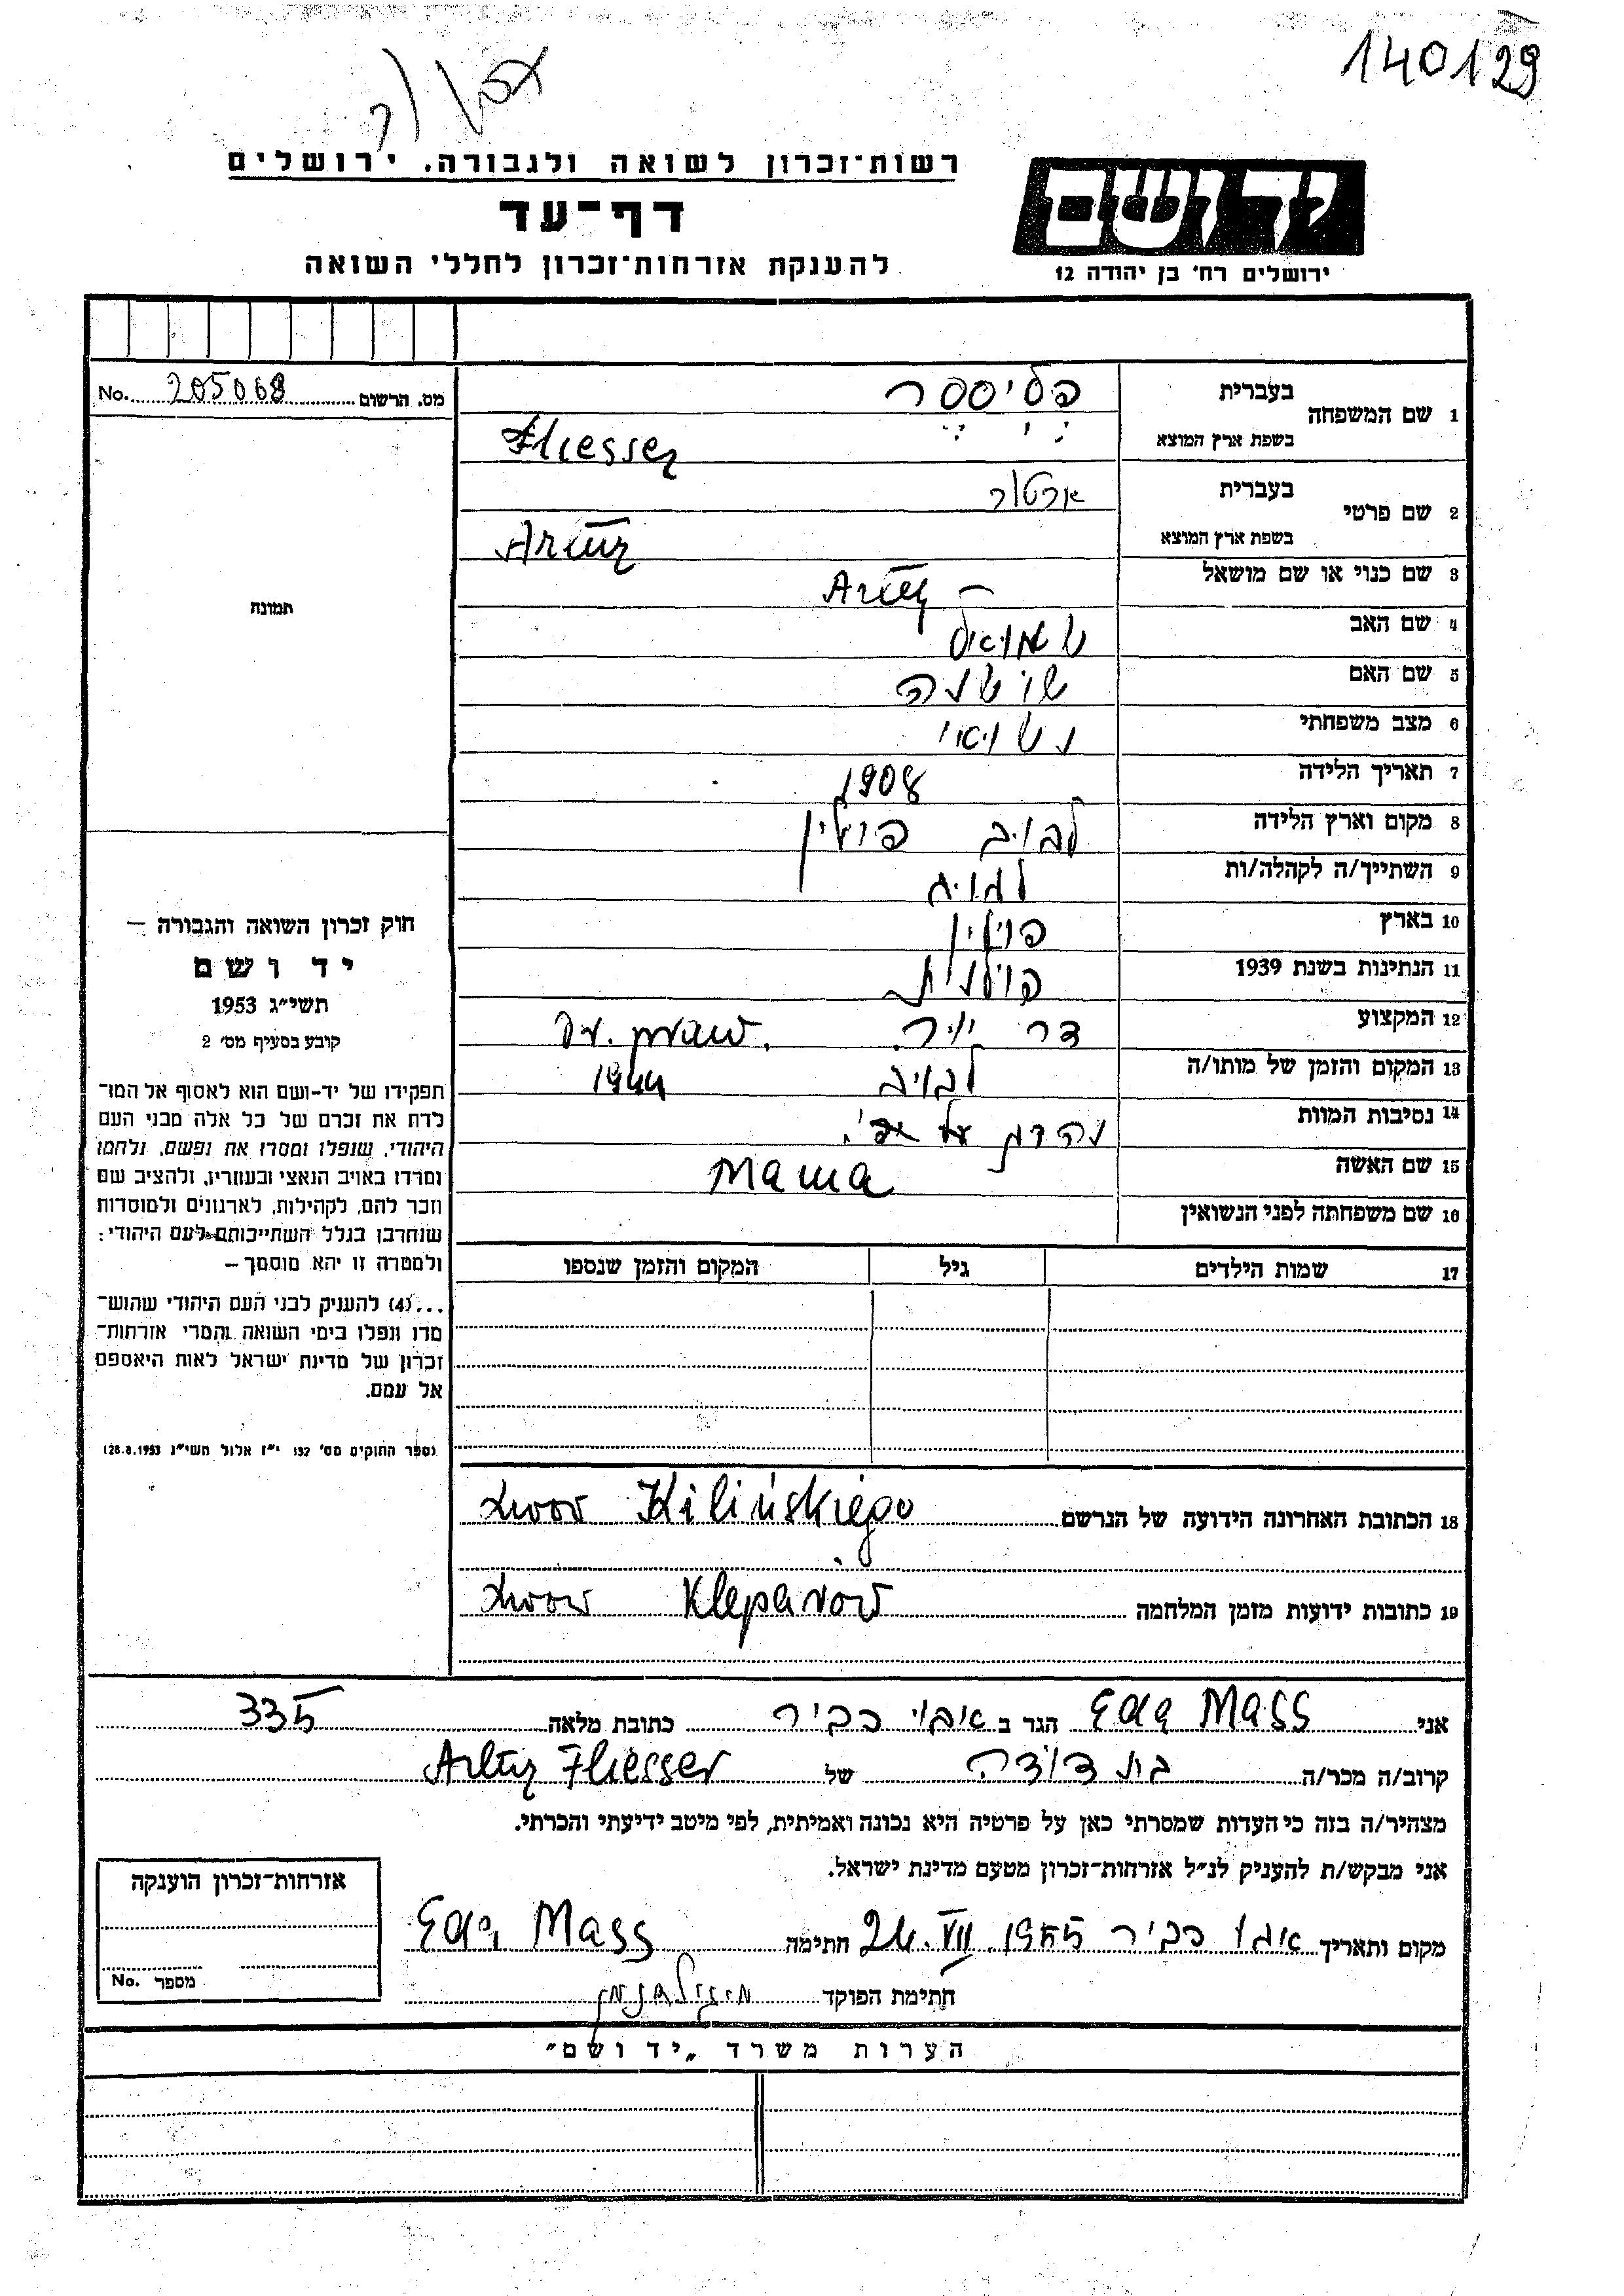 140129
רשות־זכרון לשואה ולגבורה. ירושלים
דף־עד
להענקת אזרחות־זכרון לחללי השואה
יד ושם
ירושלים רח' בן יהודה 12
מס. הרשום 205068 No.
תמונה
חוק זכרון השואה והגבורה –
יד ושם
תשי״ג 1953
קובע בסעיף מס׳ 2
תפקידו של יד-ושם הוא לאסוף אל המו־
לדת את זכרם של כל אלה מבני העם
היהודי, שנפלו ומסרו את נפשם, נלחמו
ומרדו באויב הנאצי ובעוזריו, ולהציב שם
וזכר להם, לקהילות, לארגונים ולמוסדות
שנחרבו בגלל השתייכותם לעם היהודי:
ולמטרה זו יהא מוסמך –
...(4) להעניק לבני העם היהודי שהוש־
מדו ונפלו בימי השואה והמרי אזרחות־
זכרון של מדינת ישראל לאות היאספם
אל עמם.
(ספר החוקים מס׳ 132 י״ז אלול תשי״ג 28.8.1953)
1 שם המשפחה בעברית פליסר
בשפת ארץ המוצא Fliesser
2 שם פרטי בעברית ארטור
בשפת ארץ המוצא Artur
3 שם כנוי או שם מושאל Artur –
4 שם האב שמואל
5 שם האם שושנה
6 מצב משפחתי נשואי
7 תאריך הלידה 1908
8 מקום וארץ הלידה לבוב פולין
9 השתייך/ה לקהלה/ות לבוב
10 בארץ פולין
11 הנתינות בשנת 1939 פולנית
12 המקצוע דר יור. Dr. praw.
13 המקום והזמן של מותו/ה לבוב 1944
14 נסיבות המוות נהרג על
15 שם האשה Mania
16 שם משפחתה לפני הנשואין
17 שמות הילדים גיל המקום והזמן שנספו
18 הכתובת האחרונה הידועה של הנרשם Lwow Kilińskiego
19 כתובות ידועות מזמן המלחמה Lwow Kleparów
אני Eda Mass הגר ב אבו כביר כתובת מלאה 335
קרוב/ה מכר/ה בת דודה של Artur Fliesser
מצהיר/ה בזה כי העדות שמסרתי כאן על פרטיה היא נכונה ואמיתית, לפי מיטב ידיעתי והכרתי.
אני מבקש/ת להעניק לנ״ל אזרחות־זכרון מטעם מדינת ישראל.
מקום ותאריך אבו כביר 24.VII.1955 חתימה Eda Mass
חתימת הפוקד
אזרחות־זכרון הוענקה
מספר No.
הערות משרד „יד ושם״